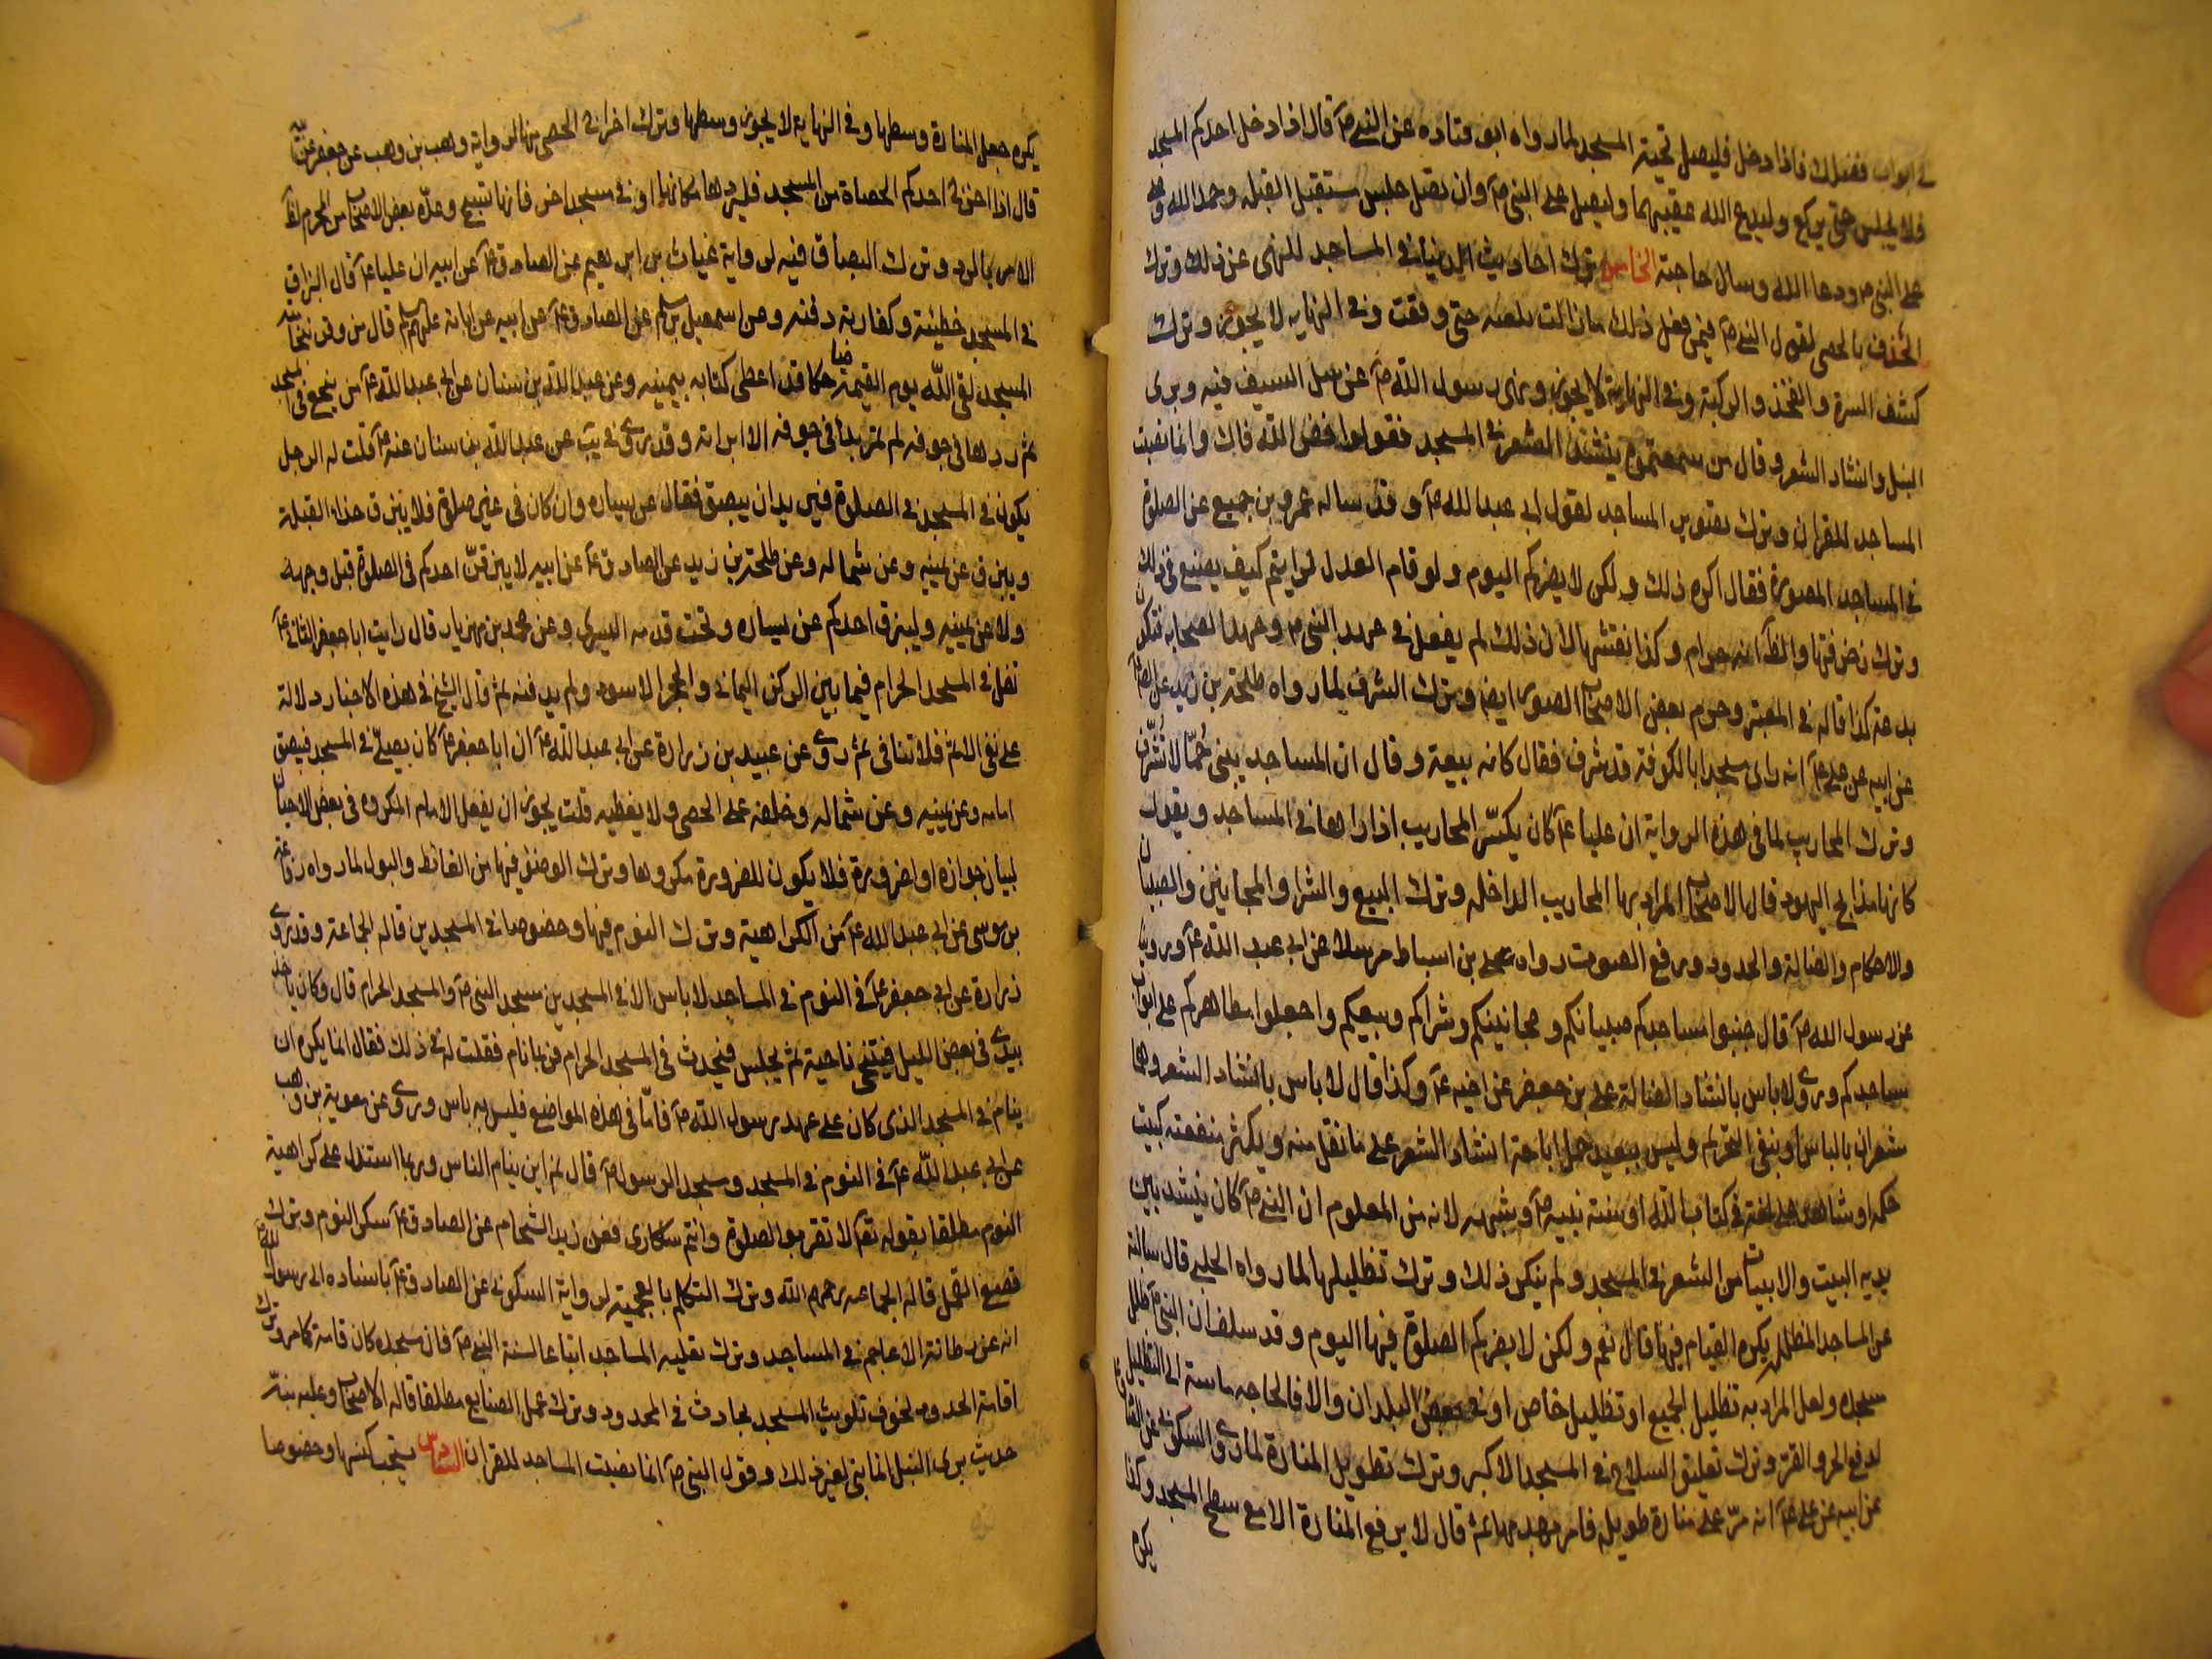 في ابواب فضلك فاذا دخل فليصل تحية المسجد لما رواه ابو قتاده عن النبي ص قال اذا دخل احدكم المسجد
فلا يجلس حتى يركع وليدع الله عقيبهما وليصل على النبي ص وان يصل جلس مستقبل القبله وحمد الله وصلى
على النبي ص ودعا الله وسال حاجته الخامس ترك احاديث الدنيا في المساجد للنهى عن ذلك وترك
الخذف بالحصى لقول النبي ص فيمن فعل ذلك ما زالت تلعنه حتى وقعت وفي النهايه لا يجوز وترك
كشف السرة والفخذ والركبة وفي النهاية لا يجوز ونهى رسول الله ص عن سل السيف فيه وبرى
النبل وانشاد الشعر وقال من سمعتموه ينشد الشعر في المسجد فقولوا فض الله فاك وانما نصبت
المساجد للقران وترك تصوير المساجد لقول ابي عبد الله ع وقد ساله عمرو بن جميع عن الصلوة
في المساجد المصورة فقال اكره ذلك ولكن لا يضركم اليوم ولو قام العدل لرايتم كيف يصنع في ذلك
وترك زخرفتها والظ انه حرام وكذا نقشها لان ذلك لم يفعل في عهد النبي ص وعهد الصحابه فتكون
بدعة كذا قاله في المعتبر وحرم بعض الاصحاب الصور ايضا وترك الشرف لما رواه طلحة بن زيد عن الص ع
عن ابيه عن علي ع انه راى مسجدا بالكوفة قد شرف فقال كانه بيعة وقال ان المساجد يبنى جُمّا لا تُشَرَّف
وترك المحاريب لما في هذه الرواية ان عليا ع كان يكسّر المحاريب اذا راها في المساجد ويقول
كانها مذابح اليهود قال الاصحاب المراد بها المحاريب الداخله وترك البيع والشرا والمجانين والصبيان
والاحكام والضالة والحدود ورفع الصوت رواه علي بن اسباط مرسلا عن ابي عبد الله ع وروينا
عن رسول الله ص قال جنبوا مساجدكم صبيانكم ومجانينكم وشراكم وبيعكم واجعلوا مطاهركم على ابواب
مساجدكم وروى لا باس بانشاد الضالة علي بن جعفر عن اخيه ع وكذا قال لا باس بانشاد الشعر وهما
مشعران بالباس او بنفي التحريم وليس ببعيد حمل اباحة انشاد الشعر على ما تقل منه ويكثر منفعته كبيت
حكمه او شاهد على لغة في كتاب الله او سنة نبيه ص وشبهه لانه من المعلوم ان النبي ص كان ينشد بين
يديه البيت والابيات من الشعر في المسجد ولم ينكر ذلك وترك تظليلها لما رواه الحلبي قال سالته
عن المساجد المظلله يكره القيام فيها قال نعم ولكن لا يضركم الصلوة فيها اليوم وقد سلف ان النبي ص ظلل
مسجده ولعل المراد به تظليل الجميع او تظليل خاص او في بعض البلدان والا فالحاجه ماسة الى التظليل
لدفع الحر والقر وترك تعليق السلاح في المسجد الاكبر وترك تطويل المنارة لما روى السكوني عن الصادق ع
عن ابيه عن علي ع انه مرّ على منارة طويله فامر بهدمها ثم قال لا يرفع المنارة الا مع سطح المسجد وكذا
يكره
يكره جعل المنارة وسطها وفي النهاية لا يجوز وسطها وترك اخراج الحصى منها لرواية وهب بن وهب عن جعفر عن ابيه
قال اذا اخرج احدكم الحصاة من المسجد فليردها مكانها او في مسجد اخر فانها تسبح وعدّه بعض الاصحاب من المحرم لظ
الامر بالرد وترك البصاق فيه لرواية غياث بن ابراهيم عن الصادق ع عن ابيه ان عليا ع قال البزاق
في المسجد خطيئة وكفارته دفنه وعن اسمعيل بن مسلم عن الصادق ع عن ابيه عن ابائه عليهم السلم قال من وقر بنخامته
المسجد لقى الله يوم القيمة ضاحكا قد اعطى كتابه بيمينه وعن عبد الله بن سنان عن ابي عبد الله ع من ينخع في المسجد
ثم ردها في جوفه لم تمر بداء في جوفه الا ابراته وقد روى في يب عن عبد الله بن سنان عنه ع قلت له الرجل
يكون في المسجد في الصلوة فيريد ان يبصق فقال عن يساره وان كان في غير صلوة فلا يبزق حذاء القبلة
ويبزق عن يمينه وعن شماله وعن طلحة بن زيد عن الصادق ع عن ابيه لا يبزقنّ احدكم في الصلوة قبل وجهه
ولا عن يمينه وليبزق احدكم عن يساره وتحت قدمه اليسرى وعن محمد بن مهزيار قال رايت ابا جعفر الثاني ع
تفل في المسجد الحرام فيما بين الركن اليماني والحجر الاسود ولم يدفنه ثم قال الشيخ في هذه الاخبار دلالة
على نفي الاثم فلا تنافى ثم روى عن عبيد بن زرارة عن ابي عبد الله ع ان ابا جعفر ع كان يصلّي في المسجد فيبصق
امامه وعن يمينه وعن شماله وخلفه على الحصى ولا يغطيه قلت يجوز ان يفعل الامام المكروه في بعض الاحيان
لبيان جوازه او لضرورة فلا يكون للضرورة مكروها وترك الوضوء فيها من الغائط والبول لما رواه رفاعة
بن موسى عن ابي عبد الله ع من الكراهية وترك النوم فيها وخصوصا في المسجدين قاله الجماعة وقد روى
زرارة عن ابي جعفر ع في النوم في المساجد لا باس الا في المسجدين مسجد النبي ص والمسجد الحرام قال وكان ياخذ
بيدي في بعض الليل فيتنحى ناحية ثم يجلس فيتحدث في المسجد الحرام فربما نام فقلت له في ذلك فقال انما يكره ان
ينام في المسجد الذي كان على عهد رسول الله ص فامّا في هذه المواضع فليس به باس وروى عن معوية بن وهب
عن ابي عبد الله ع في النوم في المسجد ومسجد الرسول ص قال نعم اين ينام الناس وربما استدل على كراهية
النوم مطلقا بقوله تع لا تقربوا الصلوة وانتم سكارى فعن زيد الشحام عن الصادق ع سكر النوم وترك
قصع القمل قاله الجماعه رحمهم الله وترك التكلم بالعجمية لرواية السكوني عن الصادق ع باسناده الى رسول الله ص
انه عن رطانة الاعاجم في المساجد وترك تعليه المساجد اتباعا لسنة النبي ص فان مسجده كان قامة كما مر وترك
اقامة الحدود لخوف تلويث المسجد بحادث في المحدود وترك عمل الصنايع مطلقا قاله الاصحاب وعليه نبّه
حديث برى النبل انما بنى لغير ذلك وقول النبي ص انما نصبت المساجد للقران السادس يستحب كنسها وخصوصا